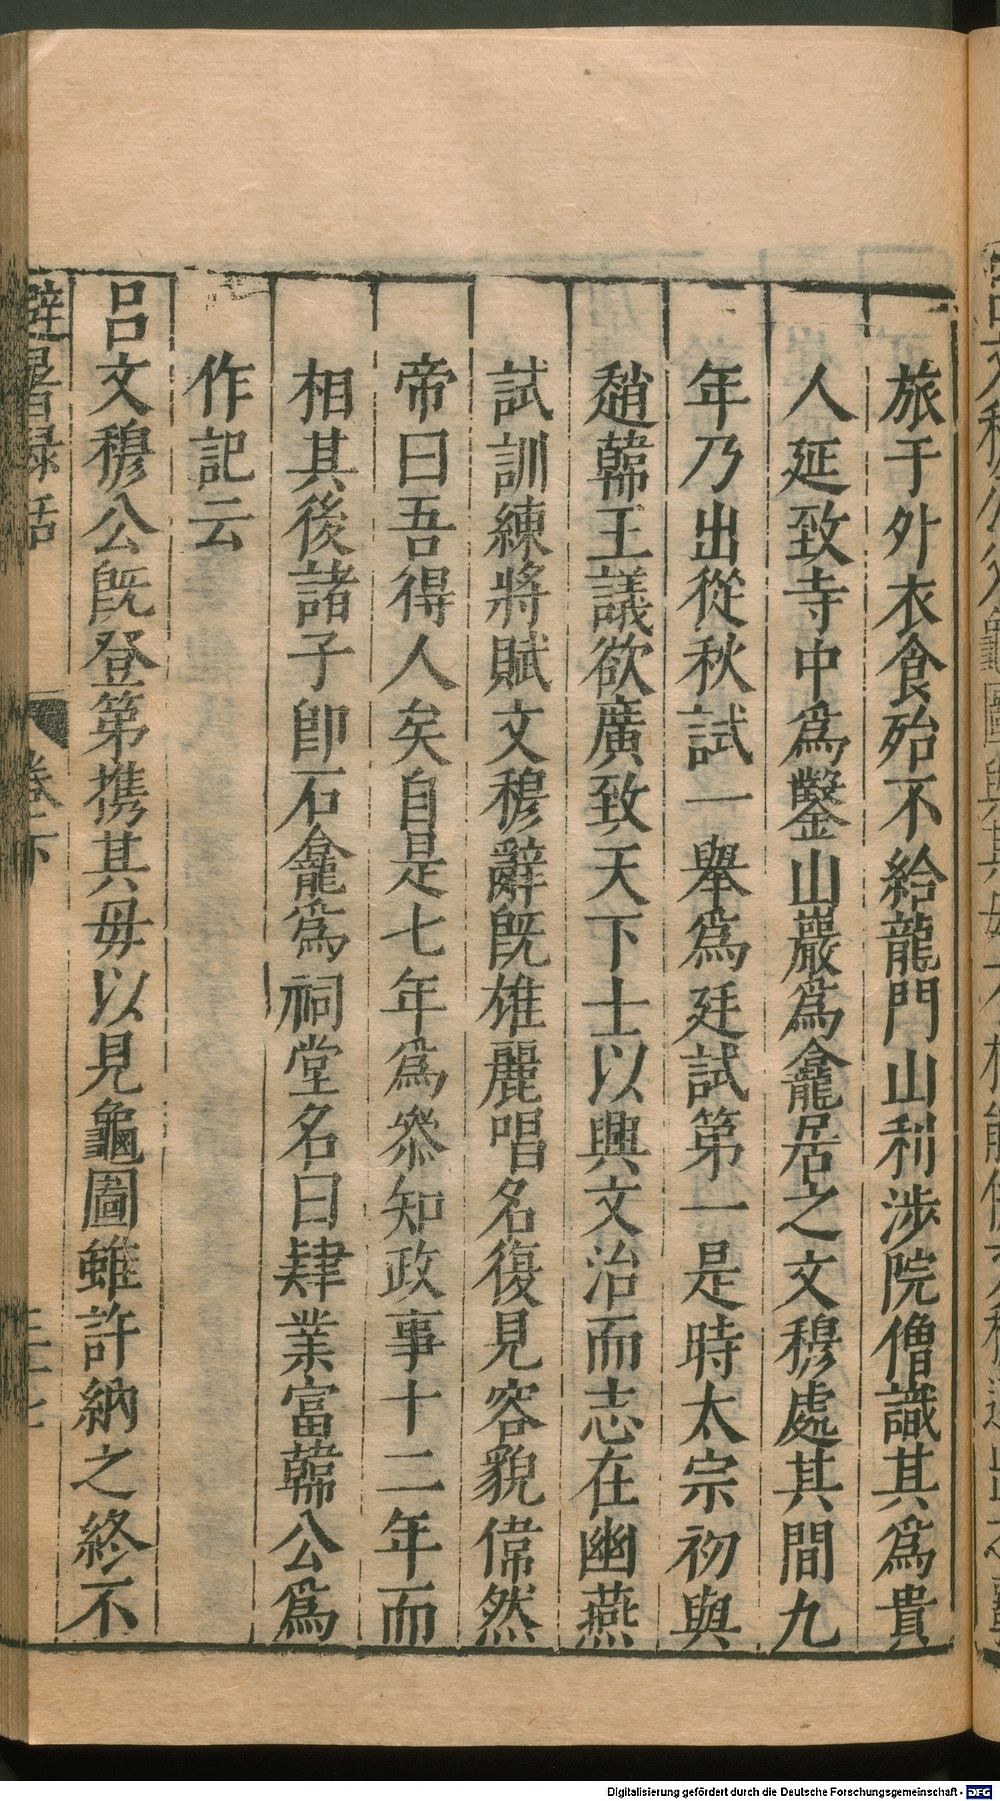 旅于外衣食殆不給龍門山利涉院僧識其爲貴
人延致寺中爲鑿山巖爲龕居之文穆處其間九
年乃出從秋試一舉爲廷試第一是時太宗初與
趙韓王議欲廣致天下士以興文治而志在幽燕
試訓練將賦文穆辭旣雄麗唱名復見容貌偉然
帝曰吾得人矣自是七年爲叅知政事十二年而
相其後諸子卽石龕爲祠堂名曰肄業富韓公爲
作記云
呂文穆公旣登第携其母以見龜圖雖許納之終不
避暑録話 卷下
Digitalisierung gefördert durch die Deutsche Forschungsgemeinschaft - DFG